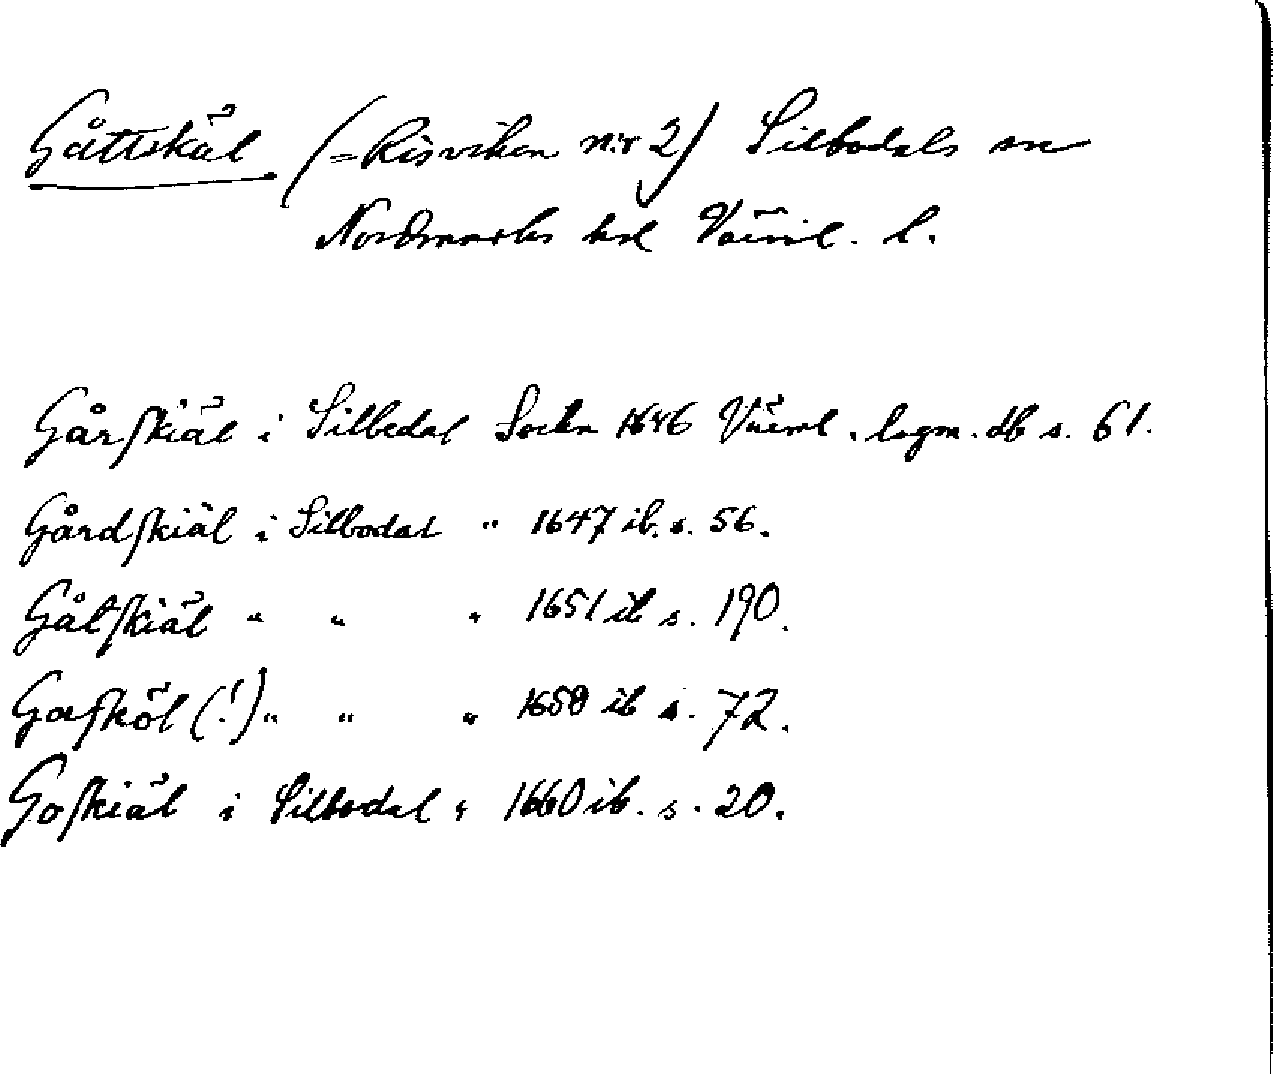 Gåttskäl (=Risviken nr 2) Silbodals sn
Nordmarks hd Värml. l.
Gårskiäl i Silbedal Sockn 1646 Värml. lagm. db s. 61.
Gårdskiäl i Silbodal " 1647 ib. s. 56.
Gålskiäl " " " 1651 ib s. 190.
Gasköl (!) " " " 1658 ib s. 72.
Goskiäl i Silbodal " 1660 ib. s. 20.